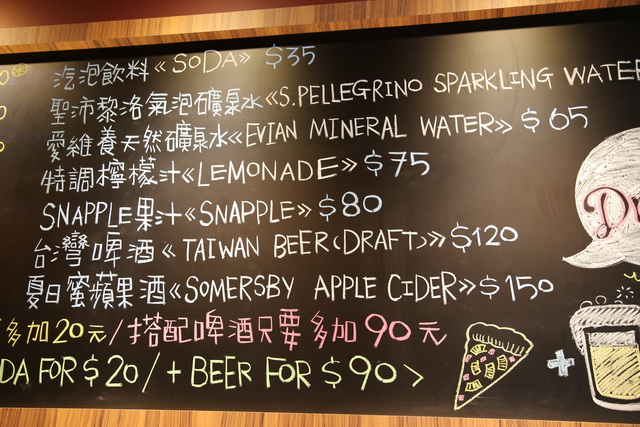 汽泡飲料《SODA》 $35
聖沛黎洛氣泡礦泉水《S.PELLEGRINO SPARKLING WATER
愛維養天然礦泉水《EVIAN MINERAL WATER》 $65
特調檸檬汁《LEMONADE》 $75
SNAPPLE果汁《SNAPPLE》 $80
台灣啤酒《TAIWAN BEER(DRAFT)》 $120
夏日蜜蘋果酒《SOMERSBY APPLE CIDER》 $150
多加20元/搭配啤酒只要多加90元
DA FOR $20/+BEER FOR $90>